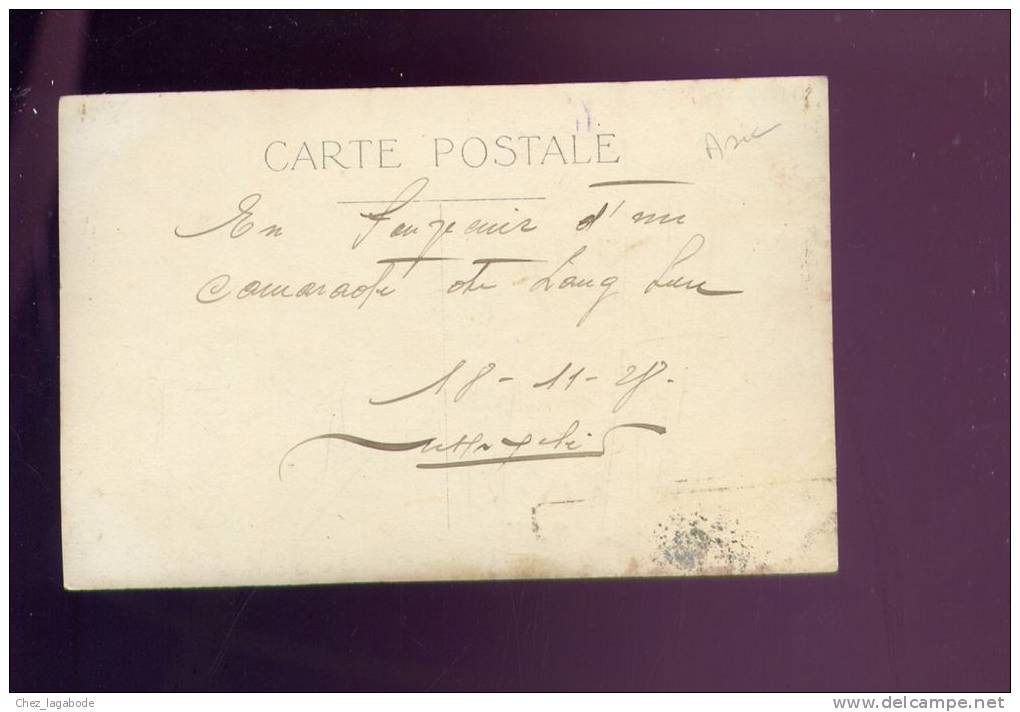 CARTE POSTALE
Asie
En Souvenir d'un
camarade de Lang
18-11-28.
Chez_lagabode
www.delcampe.net